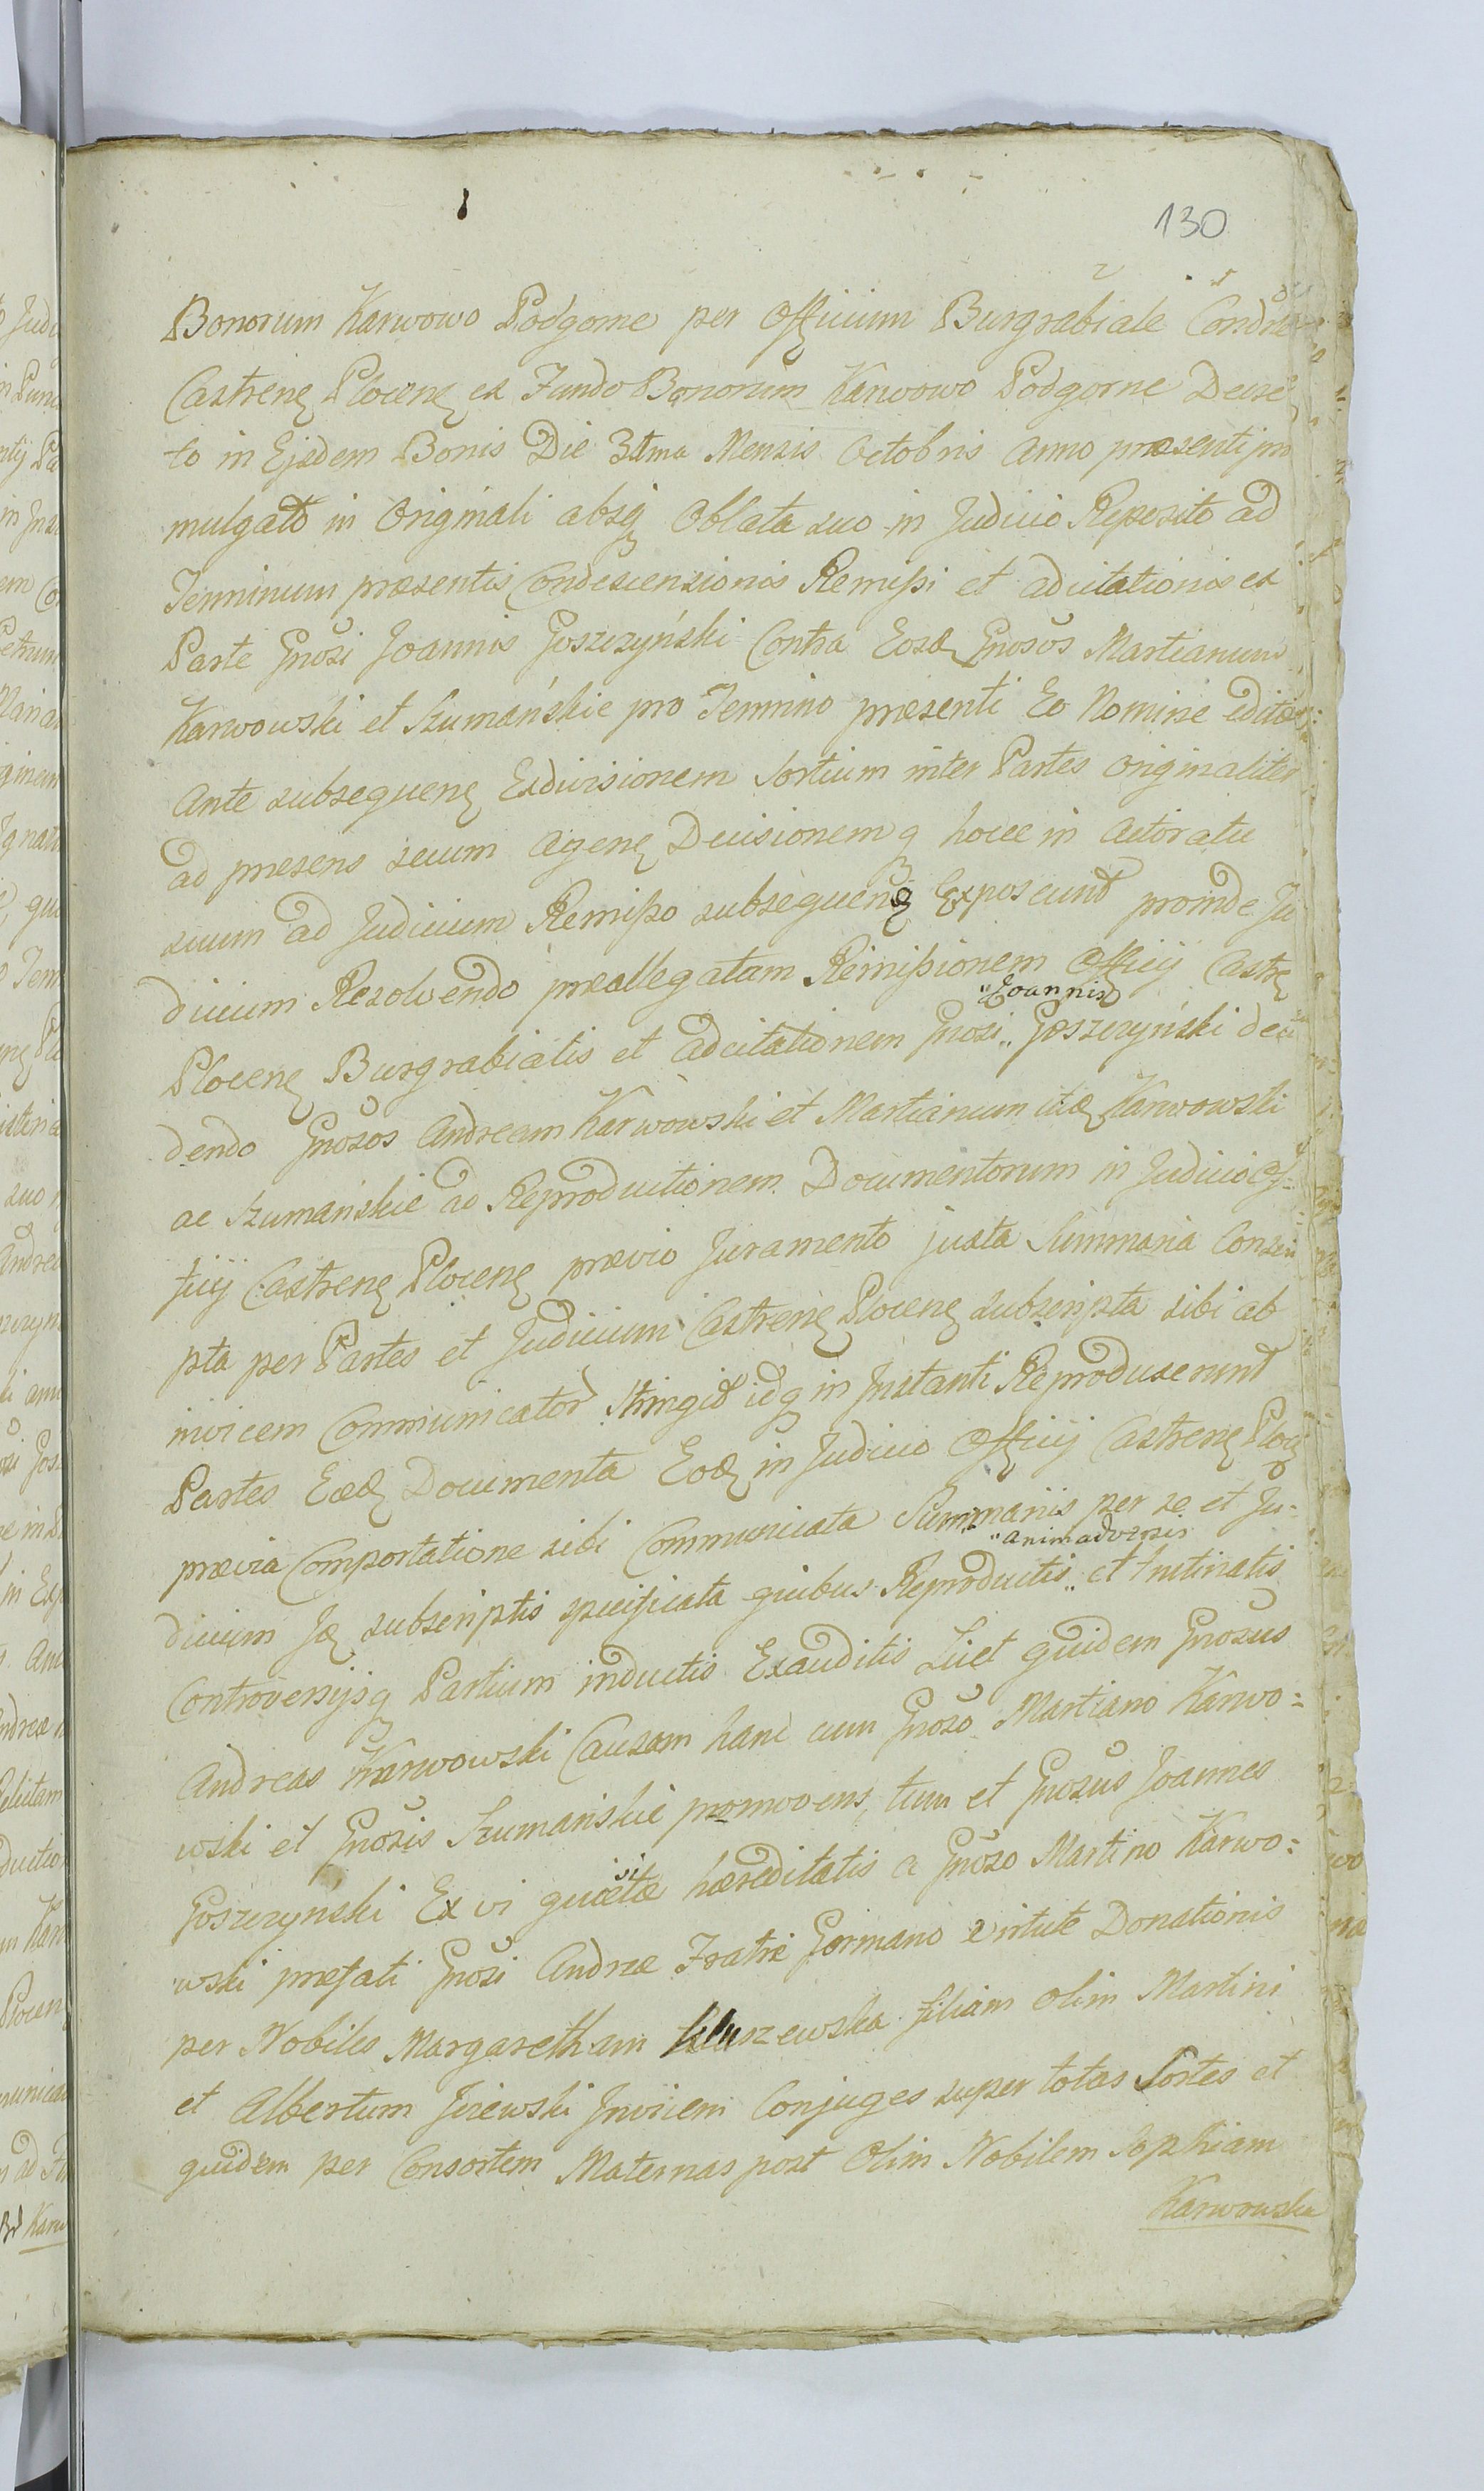 130
Bonorum Karwowo Podgorne per Officium Burgrabiale Condne
Castrenę Plocenę ex Fundo Bonorum Karwowo Podgorne Decre
to in Ejsdem Bonis Die 3tma Mensis Octobris Anno præsenti pro
mulgato in Originali absq Oblata suo in Judicio Reposito ad
Terminum præsentis Condescensionis Remissi et adcitationis ex
Parte Gnosi Joannis Goszczyński Contra Eosd Gnosos Martianum
Karwowski et Szumańskie pro Termino præsenti Eo Nomine editæ
Ante subsequenę Exdivisionem Sortium inter Partes originaliter
ad præsens secum Agenę Decisionemq hocce in Actoratu
suum ad Judicium Remisso subsequenę Exposcunt proinde Ju
dicium Resolvendo præallegatam Remissionem Officij Castrę
Plocenę Burgrabialis et adcitationem Gnosi „ Goszczyński deci
„Joannis
dendo Gnosos Andream Karwowski et Martianum itidę Karwowski
ac Szumańskie ad Reproductionem Documentorum in Judicio Of-
ficij Castrenę Plocenę prævio Juramento juxta Summaria Conscri
pta per Partes et Judicium Castrenę Plocenę subscripta sibi ab
invicem Communicator Stringit idq in Instanti Reproduxerunt
Partes Eæd Documenta Eod in Judicio Officij Castrenę Plocę
prævia Comportatione sibi Communicata Summarijs per se et Ju-
dicium Id subscriptis specificata quibus Reproductis „ et trutinatis
„animadversis
Controversijsq Partium inductis Exauditis Licet quidem Gnosus
Andreas Karwowski Causam hanc cum Gnoso Martiano Karwo=
wski et Gnosis Szumańskie promovens, tum et Gnosus Joannes
Goszczyński Ex vi quæsitæ hæreditatis a Gnoso Martino Karwo=
wski præfati Gnosi Andreæ Fratre Germano virtute Donationis
per Nobiles Margaretham filiam olim Martini
et Albertum Jzewski Invicem Conjuges super totas Sortes et
quidem per Consortem Maternas post Olim Nobilem Sophiam
Karwowska